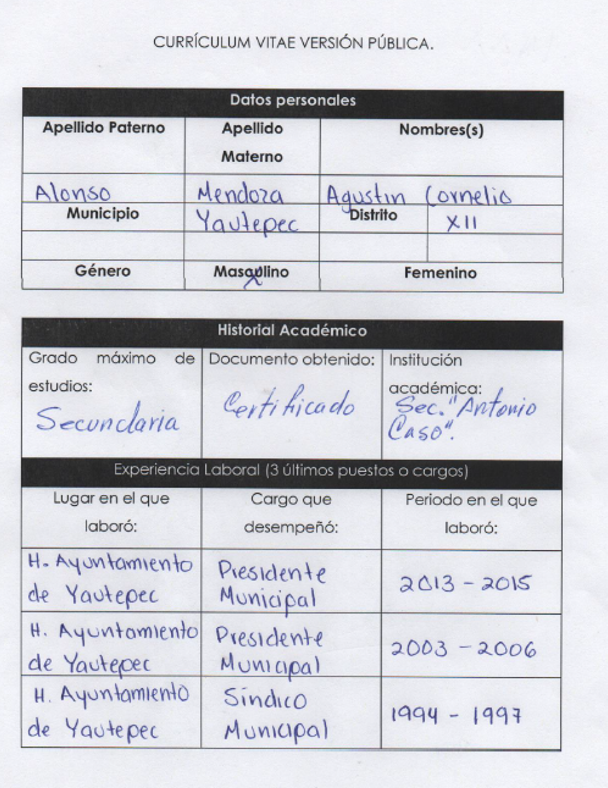 CURRÍCULUM VITAE VERSIÓN PÚBLICA.
Datos personales
Apellido Paterno Apellido Materno Nombres(s)
Alonso Mendoza Agustin Cornelio
Municipio Yautepec Distrito XII
Género Masculino X Femenino
Historial Académico
Grado máximo de estudios: Documento obtenido: Institución académica:
Secundaria Certificado Sec. "Antonio Caso".
Experiencia Laboral (3 últimos puestos o cargos)
Lugar en el que laboró: Cargo que desempeñó: Periodo en el que laboró:
H. Ayuntamiento de Yautepec Presidente Municipal 2013 - 2015
H. Ayuntamiento de Yautepec Presidente Municipal 2003 - 2006
H. Ayuntamiento de Yautepec Síndico Municipal 1994 - 1997